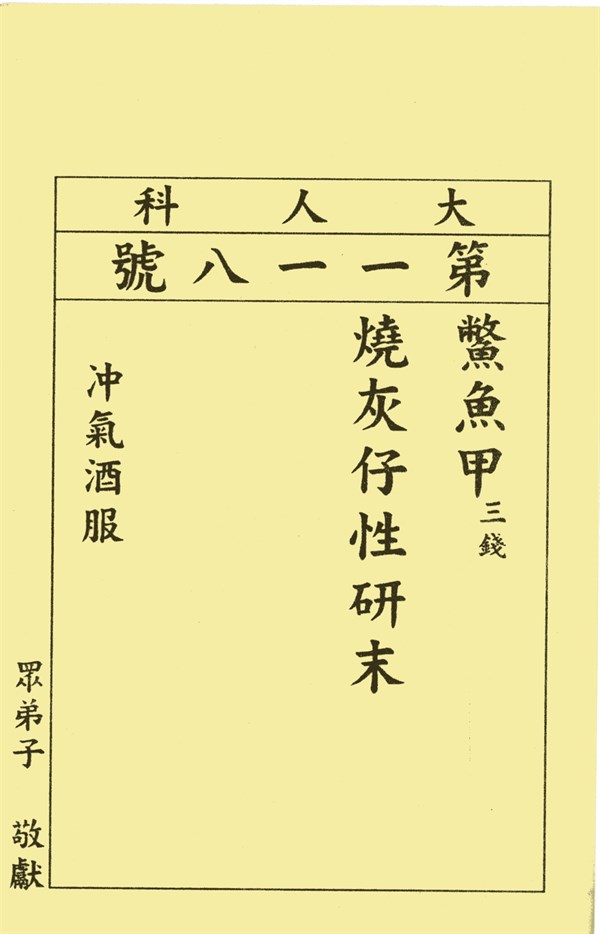 大人科
第一一八號
鱉魚甲三錢
燒灰仔性研末
冲氣酒服
眾弟子 敬獻